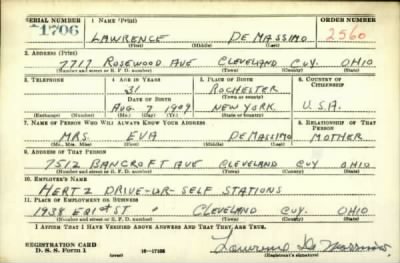 SERIAL NUMBER 1. NAME (Print) ORDER NUMBER
1706 LAWRENCE DE MASSIMO 2560
(First) (Middle) (Last)
2. ADDRESS (Print)
7717 ROSEWOOD AVE CLEVELAND CUY. OHIO
(Number and street or R. F. D. number) (Town) (County) (State)
3. TELEPHONE 4. AGE IN YEARS 5. PLACE OF BIRTH 6. COUNTRY OF CITIZENSHIP
31 ROCHESTER
DATE OF BIRTH (Town or county)
AUG 7 1909 NEW YORK U.S.A.
(Exchange) (Number) (Mo.) (Day) (Yr.) (State or country)
7. NAME OF PERSON WHO WILL ALWAYS KNOW YOUR ADDRESS 8. RELATIONSHIP OF THAT PERSON
MRS. EVA DEMASSIMO MOTHER
(Mr., Mrs., Miss) (First) (Middle) (Last)
9. ADDRESS OF THAT PERSON
7512 BANCROFT AVE CLEVELAND CUY OHIO
(Number and street or R. F. D. number) (Town) (County) (State)
10. EMPLOYER'S NAME
HERTZ DRIVE-UR-SELF STATIONS
11. PLACE OF EMPLOYMENT OR BUSINESS
1938 E 21ST ST CLEVELAND CUY. OHIO
(Number and street or R. F. D. number) (Town) (County) (State)
I AFFIRM THAT I HAVE VERIFIED ABOVE ANSWERS AND THAT THEY ARE TRUE.
REGISTRATION CARD
D. S. S. Form 1 16-17105 Lawrence De Massimo
(Registrant's signature)